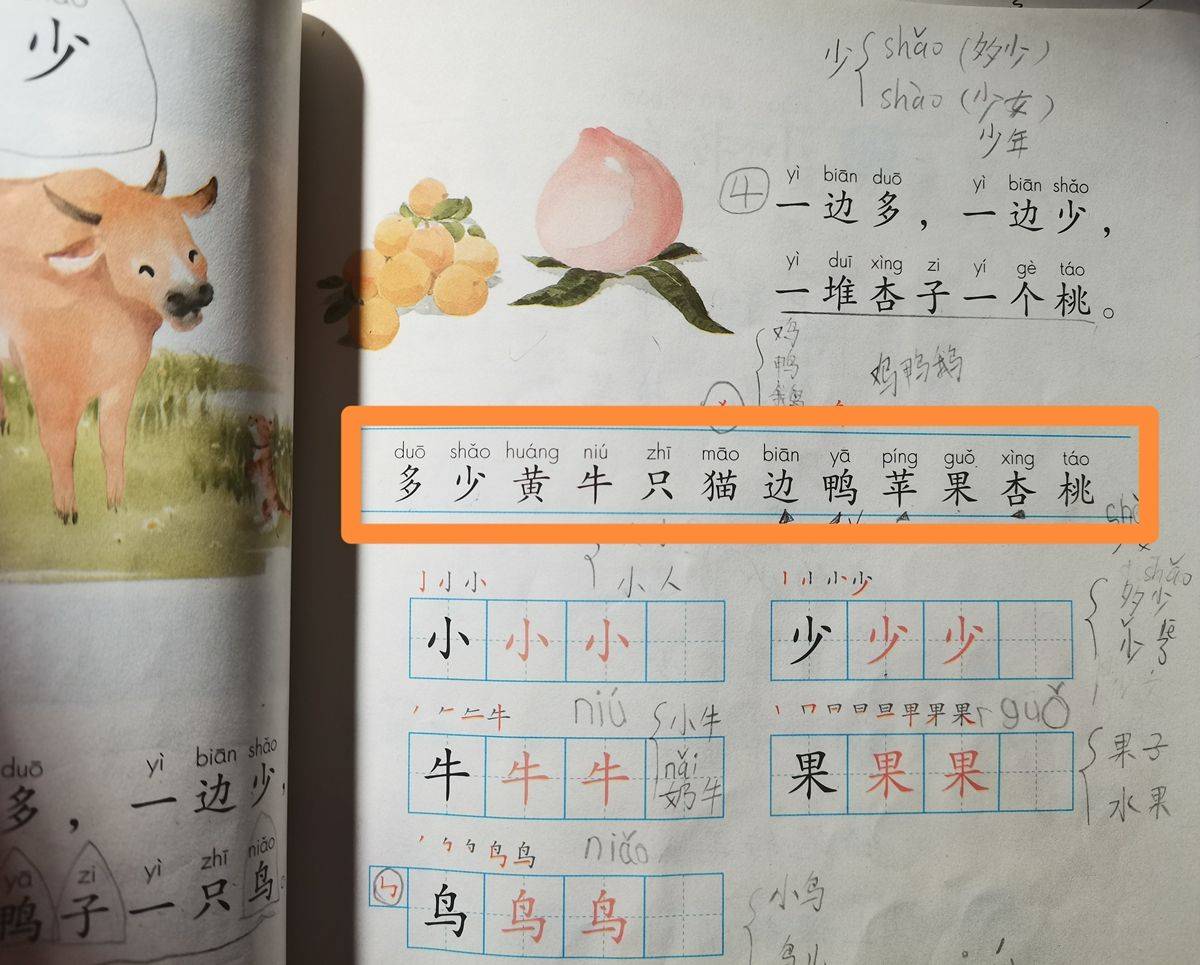 少
duō yì biān shǎo
多，一边少，
yā zi yì zhī niǎo
鸭子一只鸟。
少 shǎo（多少）
shào（少女）
少年
④
yì biān duō yì biān shǎo
一边多，一边少，
yì duī xìng zi yí gè táo
一堆杏子一个桃。
鸡
鸭
鹅
鸡鸭鹅
duō shǎo huáng niú zhī māo biān yā píng guǒ xìng táo
多少黄牛只猫边鸭苹果杏桃
小人
小小小
少少少
shǎo
多少
niú
小牛
nǎi
奶牛
牛牛牛
guǒ
果子
水果
果果果
niǎo
鸟鸟鸟
小鸟
鸟儿